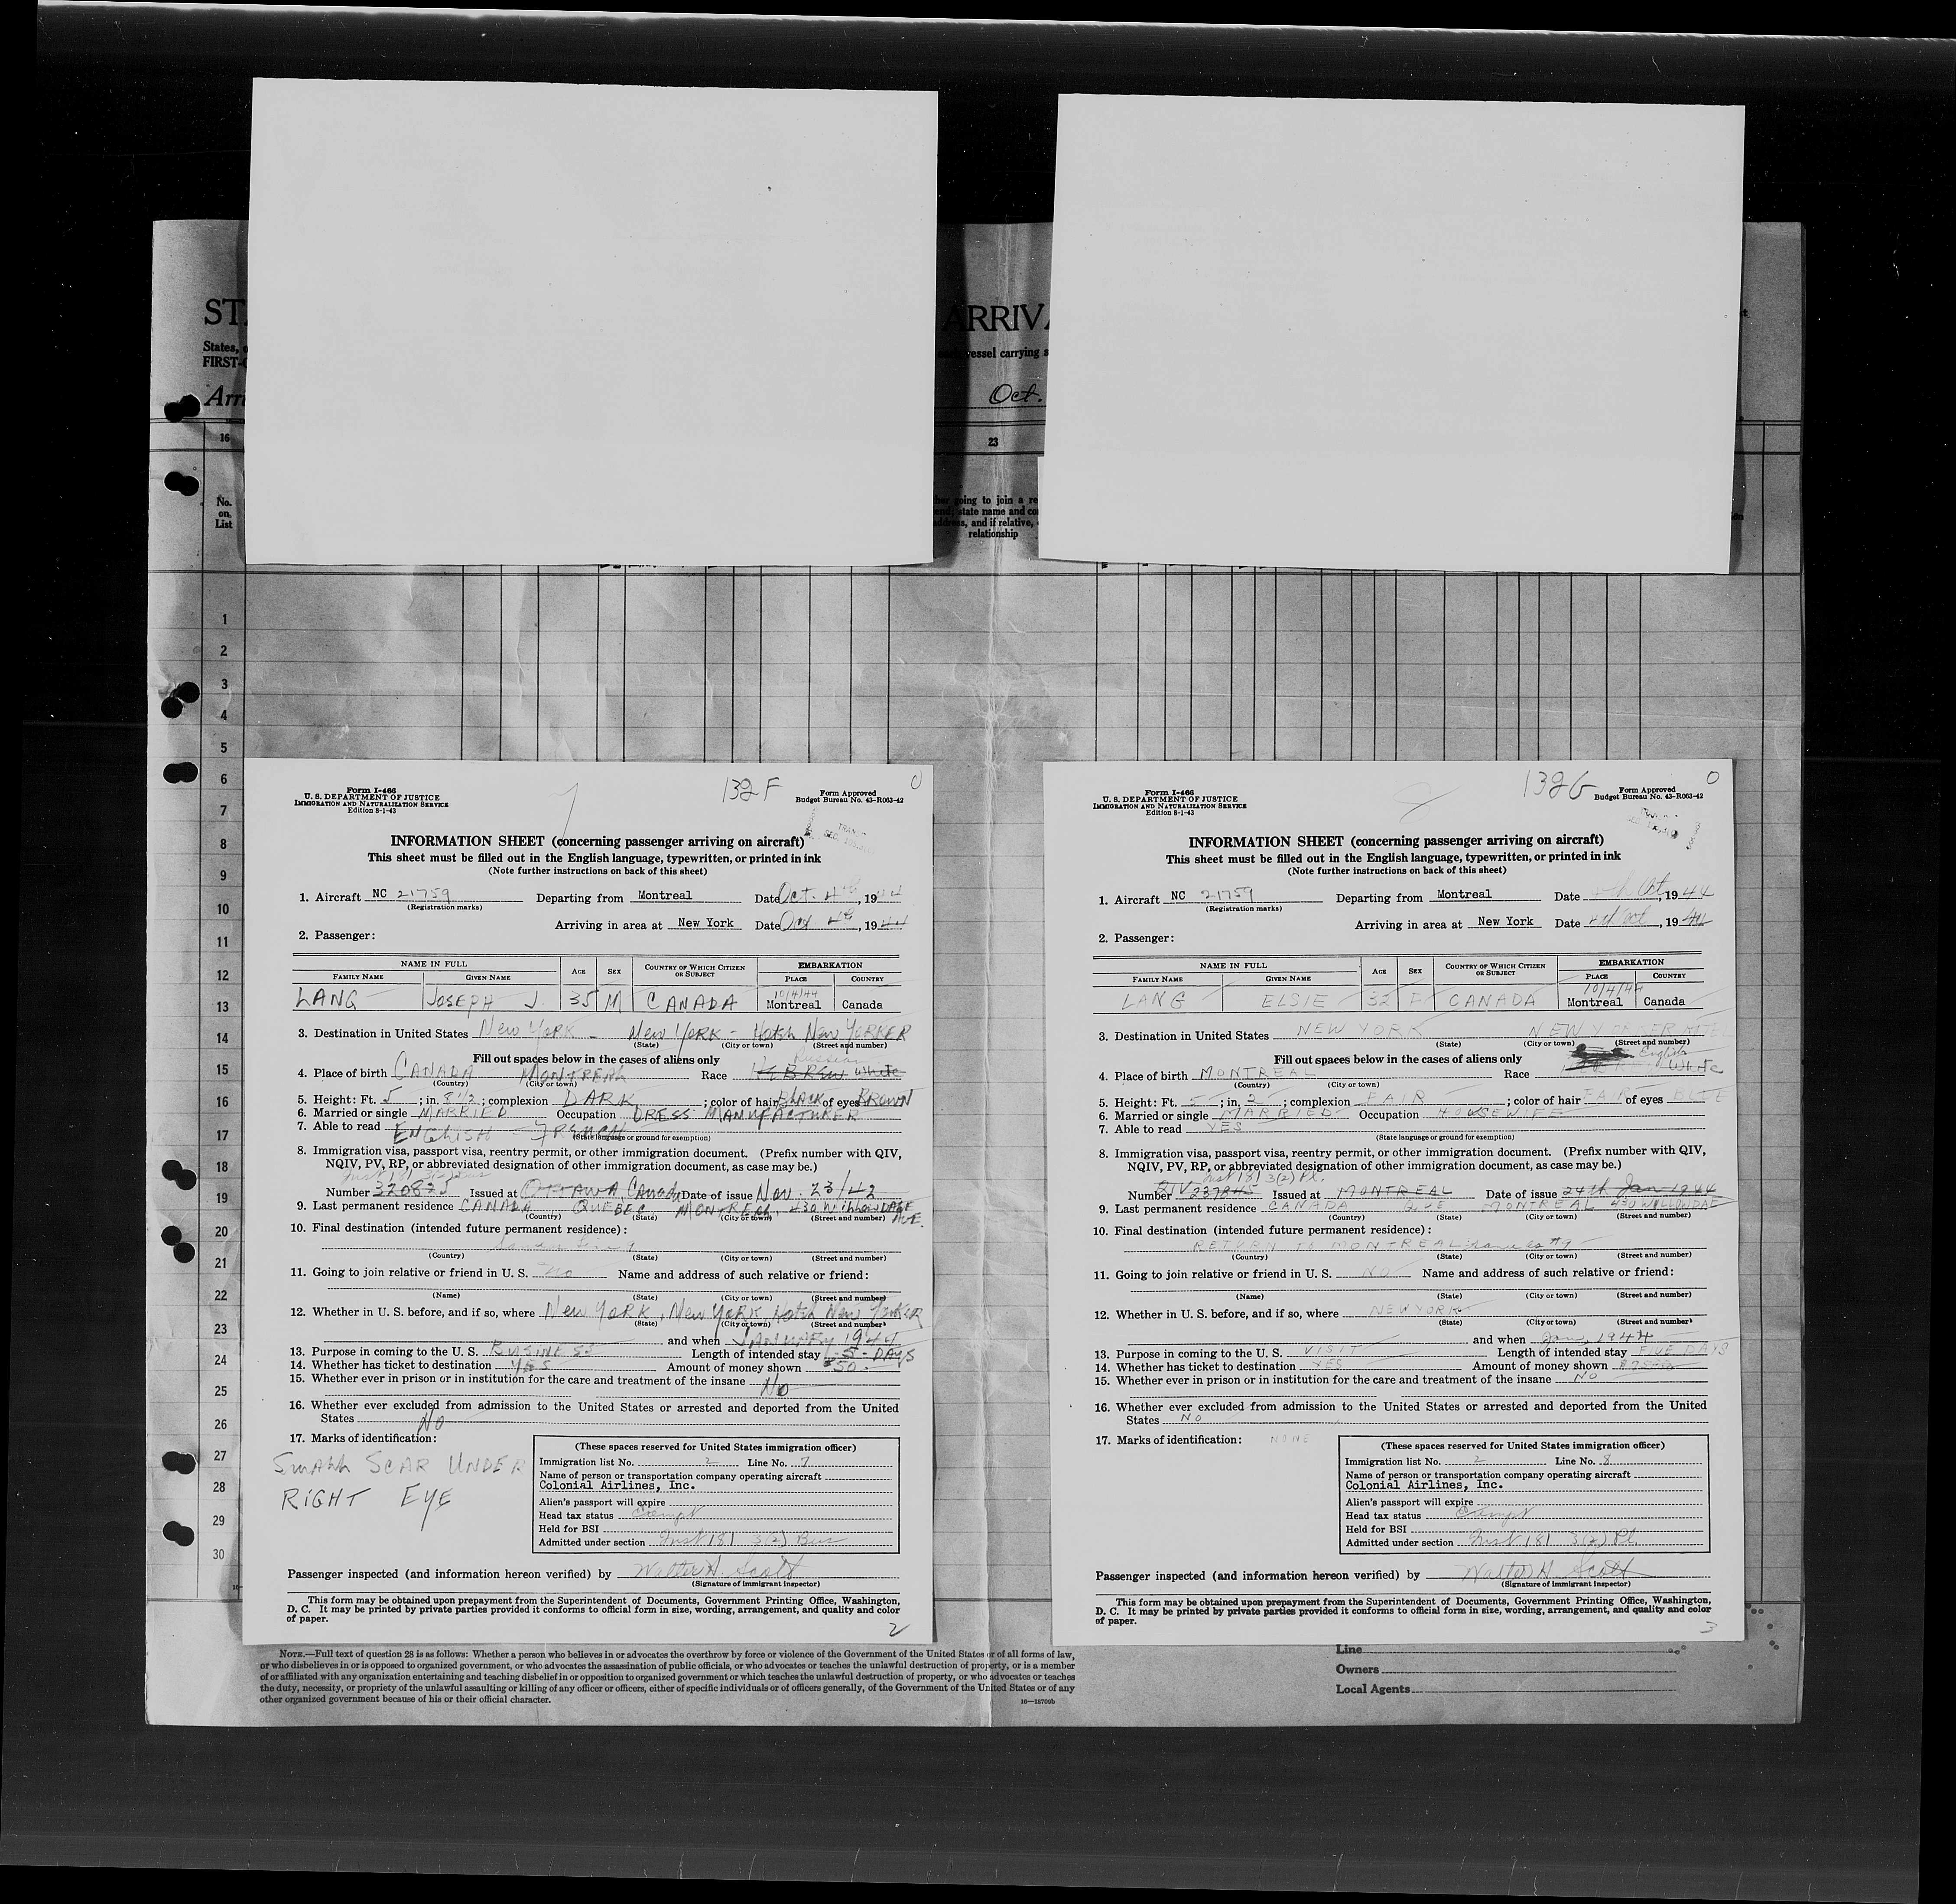 ST
ARRIV
States,
FIRST-
vessel carrying s
Arri
Oct.
16
23
No.
on
List
going to join a re
state name and co
and if relative,
relationship
1
2
3
4
5
6
7
8
9
10
11
12
13
14
15
16
17
18
19
20
21
22
23
24
25
26
27
28
29
30
7
132 F
0
Form I-466
U. S. DEPARTMENT OF JUSTICE
IMMIGRATION AND NATURALIZATION SERVICE
Edition 8-1-43
Form Approved
Budget Bureau No. 43-R063-42
INFORMATION SHEET (concerning passenger arriving on aircraft)
This sheet must be filled out in the English language, typewritten, or printed in ink
(Note further instructions on back of this sheet)
1. Aircraft NC 21759 Departing from Montreal Date Oct. 4th, 1944
(Registration marks)
Arriving in area at New York Date Oct 4th, 1944
2. Passenger:
NAME IN FULL AGE SEX COUNTRY OF WHICH CITIZEN OR SUBJECT EMBARKATION
FAMILY NAME GIVEN NAME PLACE COUNTRY
10/4/44
LANG JOSEPH J. 35 M CANADA Montreal Canada
3. Destination in United States New York - New York - Hotel New Yorker
(State) (City or town) (Street and number)
Fill out spaces below in the cases of aliens only
Russian
4. Place of birth CANADA MONTREAL Race HEBREW White
(Country) (City or town)
5. Height: Ft. 5; in. 8 1/2; complexion DARK; color of hair BLACK of eyes BROWN
6. Married or single MARRIED Occupation DRESS MANUFACTURER
7. Able to read ENGLISH - FRENCH
(State language or ground for exemption)
8. Immigration visa, passport visa, reentry permit, or other immigration document. (Prefix number with QIV,
NQIV, PV, RP, or abbreviated designation of other immigration document, as case may be.)
Number 320875 Issued at OTTAWA Canada Date of issue Nov. 23/42
9. Last permanent residence CANADA QUEBEC MONTREAL 430 WILLOWDALE AVE.
(Country) (State) (City or town) (Street and number)
10. Final destination (intended future permanent residence):
(Country) (State) (City or town) (Street and number)
11. Going to join relative or friend in U. S. No Name and address of such relative or friend:
(Name) (State) (City or town) (Street and number)
12. Whether in U. S. before, and if so, where New York, New York, Hotel New Yorker
(State) (City or town) (Street and number)
and when JANUARY 1944
13. Purpose in coming to the U. S. BUSINESS Length of intended stay 5 - DAYS
14. Whether has ticket to destination YES Amount of money shown $50.-
15. Whether ever in prison or in institution for the care and treatment of the insane No
16. Whether ever excluded from admission to the United States or arrested and deported from the United
States No
17. Marks of identification:
SMALL SCAR UNDER
RIGHT EYE
(These spaces reserved for United States immigration officer)
Immigration list No. 2 Line No. 7
Name of person or transportation company operating aircraft
Colonial Airlines, Inc.
Alien's passport will expire
Head tax status Exempt
Held for BSI
Admitted under section Inst 181 3(2) Bus
Passenger inspected (and information hereon verified) by Walter H. Scott
(Signature of immigrant inspector)
This form may be obtained upon prepayment from the Superintendent of Documents, Government Printing Office, Washington,
D. C. It may be printed by private parties provided it conforms to official form in size, wording, arrangement, and quality and color
of paper.
2
8
132 G
0
Form I-466
U. S. DEPARTMENT OF JUSTICE
IMMIGRATION AND NATURALIZATION SERVICE
Edition 8-1-43
Form Approved
Budget Bureau No. 43-R063-42
INFORMATION SHEET (concerning passenger arriving on aircraft)
This sheet must be filled out in the English language, typewritten, or printed in ink
(Note further instructions on back of this sheet)
1. Aircraft NC 21759 Departing from Montreal Date 4th Oct, 1944
(Registration marks)
Arriving in area at New York Date 4th Oct, 1944
2. Passenger:
NAME IN FULL AGE SEX COUNTRY OF WHICH CITIZEN OR SUBJECT EMBARKATION
FAMILY NAME GIVEN NAME PLACE COUNTRY
10/4/44
LANG ELSIE 32 F CANADA Montreal Canada
3. Destination in United States NEW YORK NEW YORKER HOTEL
(State) (City or town) (Street and number)
Fill out spaces below in the cases of aliens only
English
4. Place of birth MONTREAL Race White
(Country) (City or town)
5. Height: Ft. 5; in. 2; complexion FAIR; color of hair FAIR of eyes BLUE
6. Married or single MARRIED Occupation HOUSEWIFE
7. Able to read YES
(State language or ground for exemption)
8. Immigration visa, passport visa, reentry permit, or other immigration document. (Prefix number with QIV,
NQIV, PV, RP, or abbreviated designation of other immigration document, as case may be.)
Inst 181 3(2) Pl.
Number 237845 Issued at MONTREAL Date of issue 24th Jan 1944
9. Last permanent residence CANADA QUE MONTREAL 430 WILLOWDALE
(Country) (State) (City or town) (Street and number)
10. Final destination (intended future permanent residence):
RETURN TO MONTREAL same as #9
(Country) (State) (City or town) (Street and number)
11. Going to join relative or friend in U. S. NO Name and address of such relative or friend:
(Name) (State) (City or town) (Street and number)
12. Whether in U. S. before, and if so, where NEW YORK
(State) (City or town) (Street and number)
and when Jan. 1944
13. Purpose in coming to the U. S. VISIT Length of intended stay FIVE DAYS
14. Whether has ticket to destination YES Amount of money shown
15. Whether ever in prison or in institution for the care and treatment of the insane NO
16. Whether ever excluded from admission to the United States or arrested and deported from the United
States NO
17. Marks of identification: NONE
(These spaces reserved for United States immigration officer)
Immigration list No. 2 Line No. 8
Name of person or transportation company operating aircraft
Colonial Airlines, Inc.
Alien's passport will expire
Head tax status Exempt
Held for BSI
Admitted under section Inst 181 3(2) Pl.
Passenger inspected (and information hereon verified) by Walter H. Scott
(Signature of immigrant inspector)
This form may be obtained upon prepayment from the Superintendent of Documents, Government Printing Office, Washington,
D. C. It may be printed by private parties provided it conforms to official form in size, wording, arrangement, and quality and color
of paper.
3
NOTE.—Full text of question 28 is as follows: Whether a person who believes in or advocates the overthrow by force or violence of the Government of the United States or of all forms of law,
or who disbelieves in or is opposed to organized government, or who advocates the assassination of public officials, or who advocates or teaches the unlawful destruction of property, or is a member
of or affiliated with any organization entertaining and teaching disbelief in or opposition to organized government or which teaches the unlawful destruction of property, or who advocates or teaches
the duty, necessity, or propriety of the unlawful assaulting or killing of any officer or officers, either of specific individuals or of officers generally, of the Government of the United States or of any
other organized government because of his or their official character.
16—18709b
Line
Owners
Local Agents